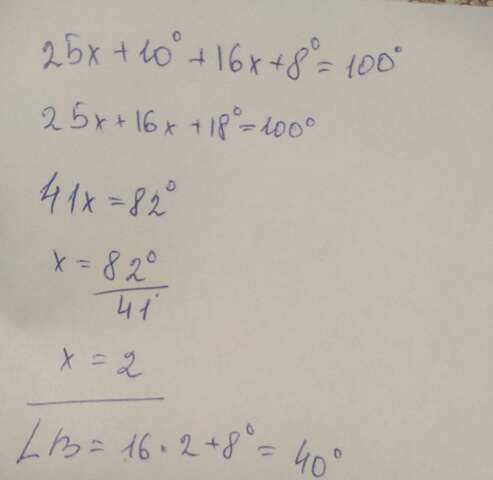 25x+10°+16x+8°=100°
25x+16x+18°=100°
41x=82°
x=82°
41
x=2
∠B=16·2+8°=40°